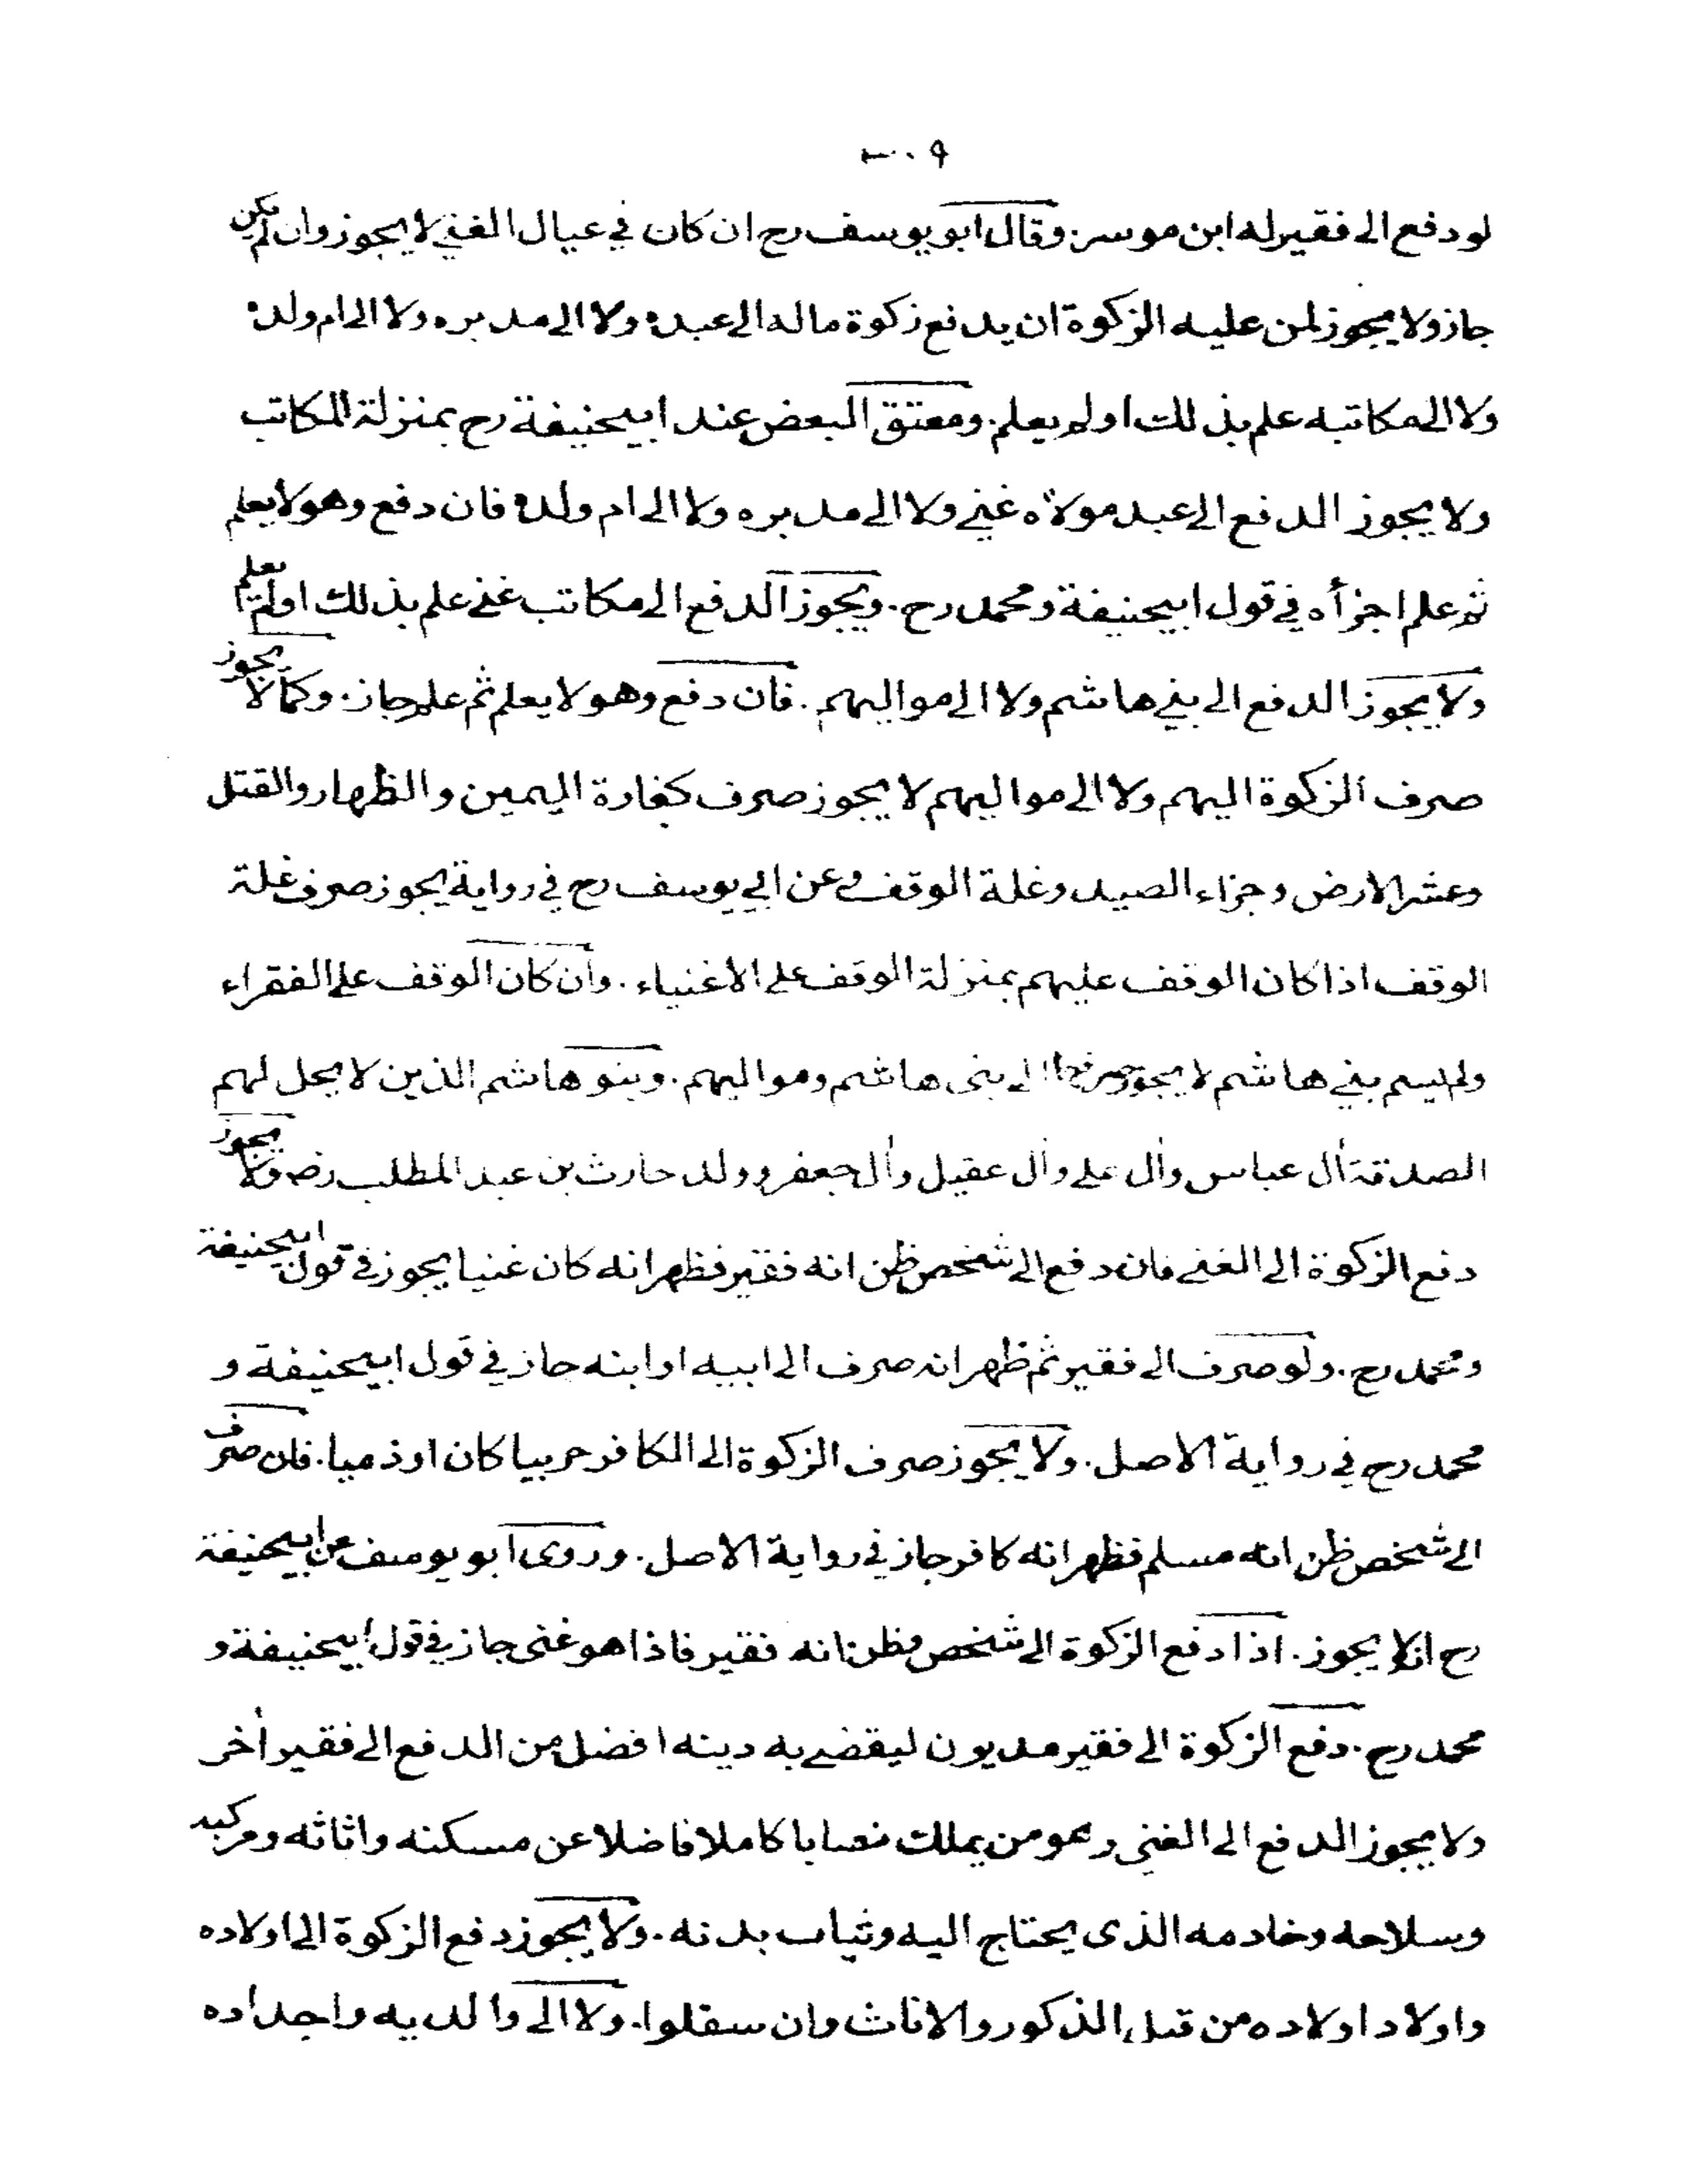 لو دفع الى فقير له ابن موسر. وقال ابو يوسف رح ان كان في عيال الغني لا يجوز وان لم يكن
جاز ولا يجوز لمن عليه الزكوة ان يدفع زكوة ماله الى عبده ولا الى مدبره ولا الى ام ولده
ولا الى مكاتبه علم بذلك او لم يعلم. ومعتق البعض عند ابيحنيفة رح بمنزلة المكاتب
ولا يجوز الدفع الى عبد مولاه غني ولا الى مدبره ولا الى ام ولده فان دفع وهو لا يعلم
ثم علم اجزأه في قول ابيحنيفة ومحمد رح. ويجوز الدفع الى مكاتب غني علم بذلك او لم يعلم
ولا يجوز الدفع الى بني هاشم ولا الى مواليهم. فان دفع وهو لا يعلم ثم علم جاز. وكما لا يجوز
صرف الزكوة اليهم ولا الى مواليهم لا يجوز صرف كفارة اليمين والظهار والقتل
وعشر الارض وجزاء الصيد وغلة الوقف وعن ابي يوسف رح في رواية يجوز صرف غلة
الوقف اذا كان الوقف عليهم بمنزلة الوقف على الاغنياء. وان كان الوقف على الفقراء
ولم يسم بني هاشم لا يجوز صرفها الى بنى هاشم ومواليهم. وبنو هاشم الذين لا يحل لهم
الصدقة أل عباس وأل على وأل عقيل وأل جعفر وولد حارث بن عبد المطلب رضه ولا يجوز
دفع الزكوة الى الغني فان دفع الى شخص ظن انه فقير فظهر انه كان غنيا يجوز في قول ابيحنيفة
ومحمد رح. ولو صرف الى فقير ثم ظهر انه صرف الى ابيه او ابنه جاز في قول ابيحنيفة و
محمد رح في رواية الاصل. ولا يجوز صرف الزكوة الى الكافر حربيا كان او ذميا. فان صرف
الى شخص ظن انه مسلم فظهر انه كافر جاز في رواية الاصل. وروى ابو يوسف عن ابيحنيفة
رح انه لا يجوز. اذا دفع الزكوة الى شخص يظن انه فقير فاذا هو غنى جاز في قول ابيحنيفة و
محمد رح. دفع الزكوة الى فقير مديون ليقضي به دينه افضل من الدفع الى فقير أخر
ولا يجوز الدفع الى الغنى وهو من يملك نصابا كاملا فاضلا عن مسكنه واثاثه ومركبه
وسلاحه وخادمه الذى يحتاج اليه وثياب بدنه. ولا يجوز دفع الزكوة الى اولاده
واولاد اولاده من قبل الذكور والاناث وان سفلوا. ولا الى والديه واجداده